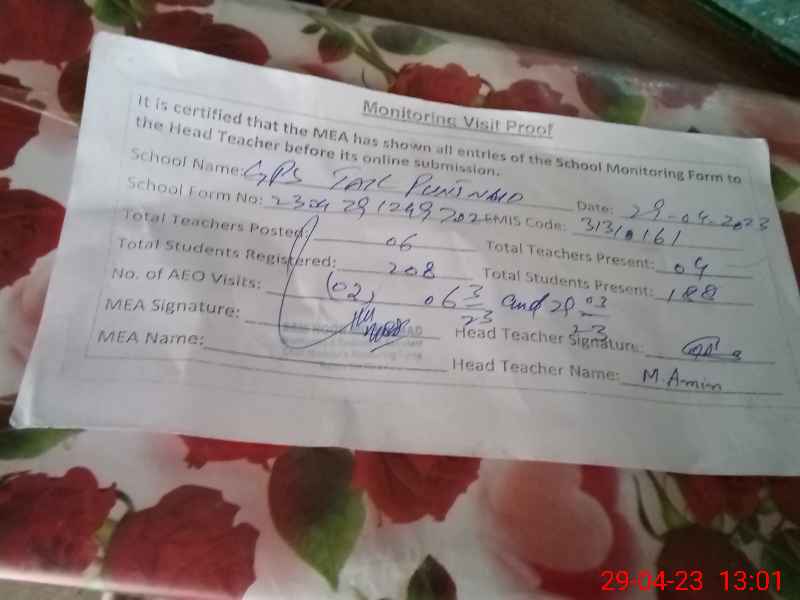 Monitoring Visit Proof
It is certified that the MEA has shown all entries of the School Monitoring Form to
the Head Teacher before its online submission.
School Name: GPS TAIL PUNJNAD Date: 29-04-2023
School Form No: EMIS Code: 31310161
Total Teachers Posted: 06 Total Teachers Present: 04
Total Students Registered: 208 Total Students Present: 188
No. of AEO Visits: (02) 06 3/23 and 29 03/23
MEA Signature: Head Teacher Signature:
MEA Name: Head Teacher Name: M. Amin
29-04-23 13:01